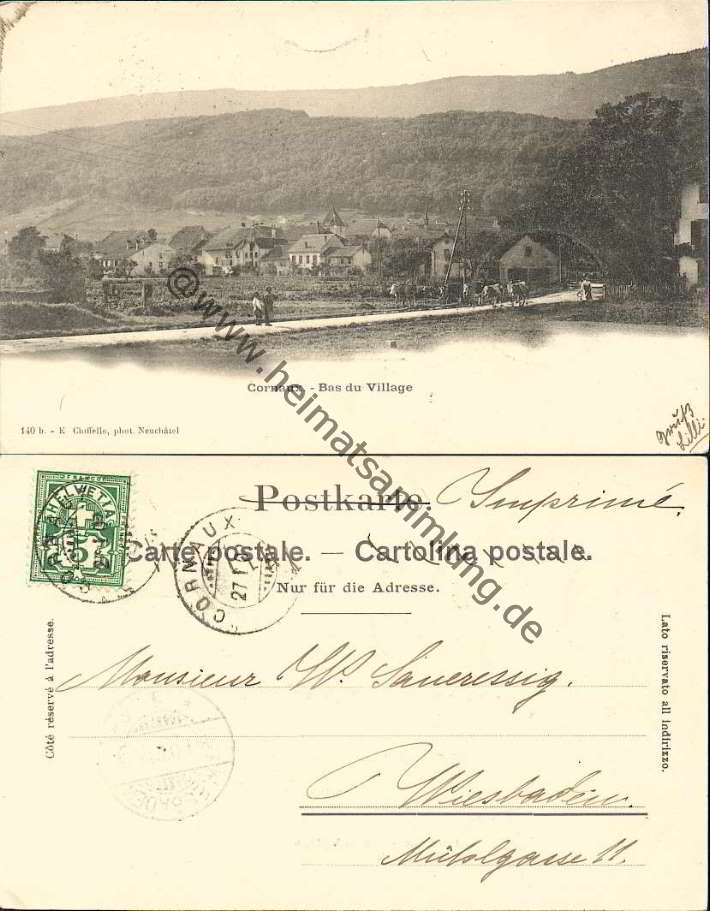 @www.heimatsammlung.de
Cornaux. - Bas du Village
140 b. - E. Chiffelle, phot. Neuchâtel
Gruß
Lilli.
HELVETIA
Postkarte. Imprimé.
CORNAUX
27.
Carte postale. — Cartolina postale.
Nur für die Adresse.
Côté réservé à l'adresse.
Lato riservato all indirizzo.
Monsieur W. Saueressig.
Wiesbaden.
Mühlgasse 11.